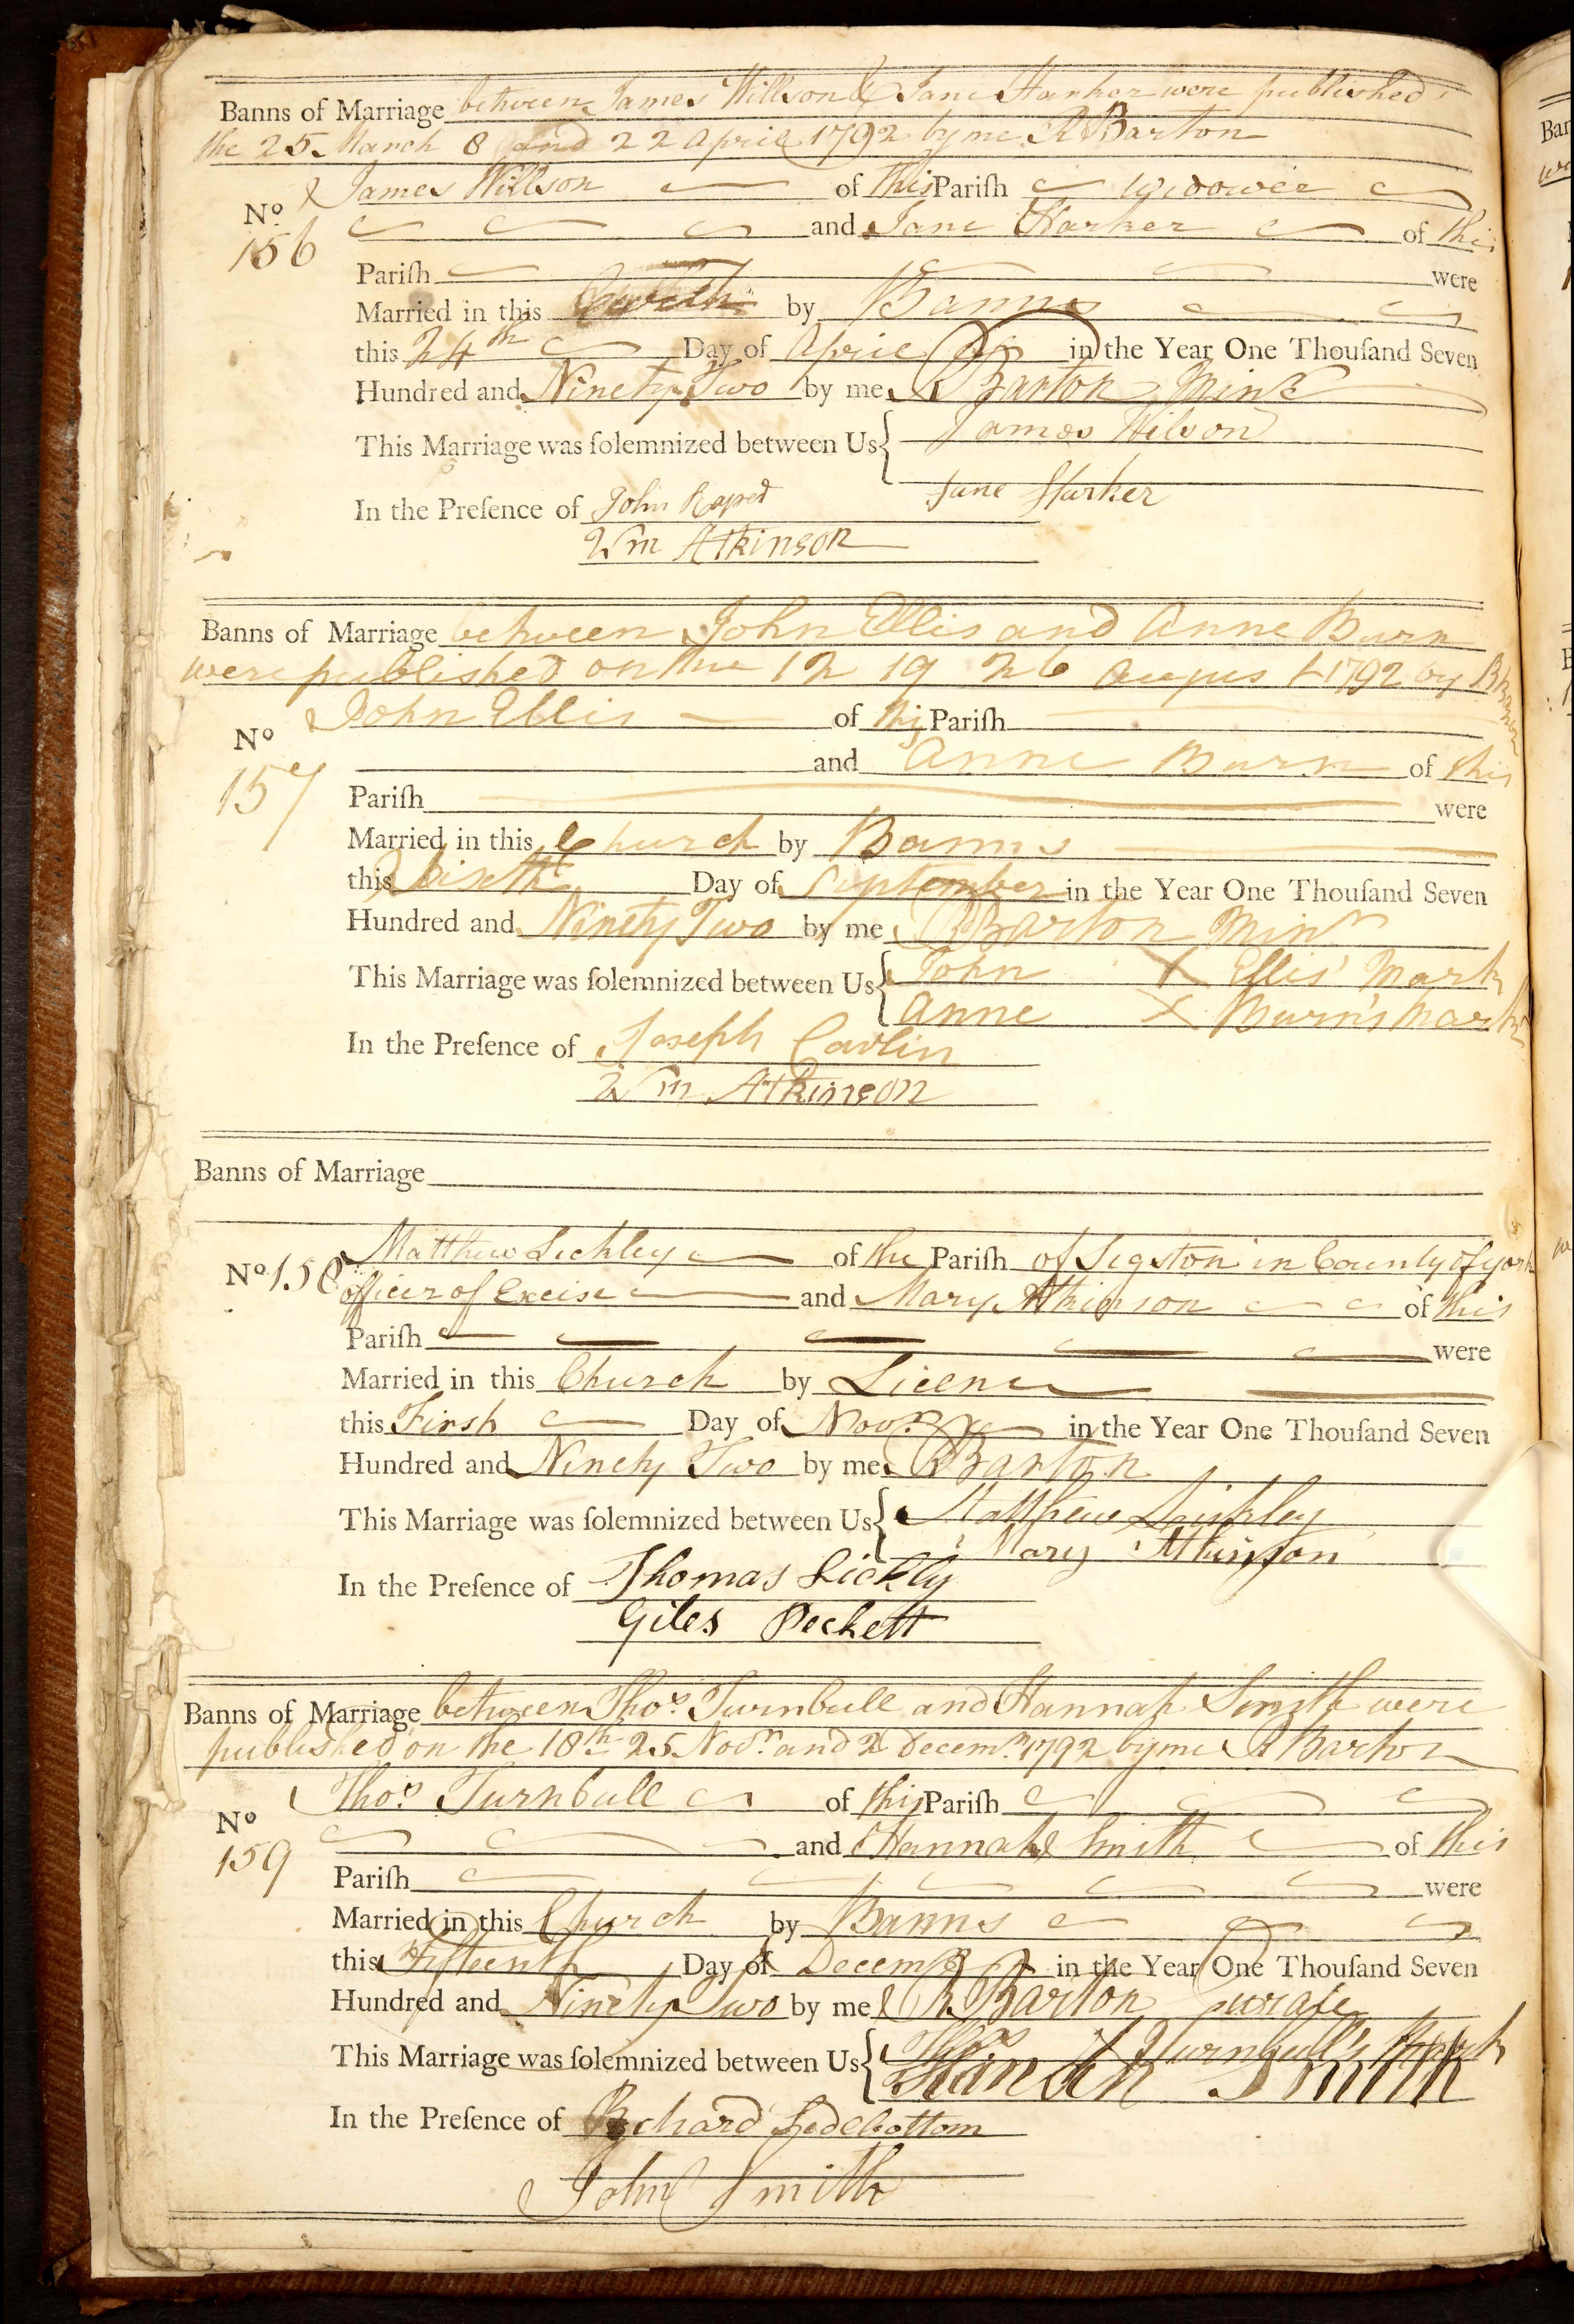 Banns of Marriage between James Willson & Jane Harker were published
the 25 March 8 and 22 April 1792 by me R Barton
James Willson of this Pariſh Widower
No. 156
and Jane Harker of this
Pariſh were
Married in this by Banns
this 24th Day of April in the Year One Thouſand Seven
Hundred and Ninety Two by me R Barton Minr
This Marriage was ſolemnized between Us James Wilson
Jane Harker
In the Preſence of John Raper
Wm Atkinson
Banns of Marriage between John Ellis and Anne Burn
were published on the 12 19 26 August 1792 by R Barton
John Ellis of this Pariſh
No 157
and Anne Burn of this
Pariſh were
Married in this Church by Banns
this Sixth Day of September in the Year One Thouſand Seven
Hundred and Ninety Two by me R Barton Minr
This Marriage was ſolemnized between Us John X Ellis' Mark
Anne X Burn's Mark
In the Preſence of Joseph Carlin
Wm Atkinson
Banns of Marriage
Matthew Lickley of the Pariſh of Sigston in County of York
No 158
officer of Excise and Mary Atkinson of this
Pariſh were
Married in this Church by Licence
this First Day of Novr. in the Year One Thouſand Seven
Hundred and Ninety Two by me R Barton
This Marriage was ſolemnized between Us Matthew Lickley
Mary Atkinſon
In the Preſence of Thomas Lickly
Giles Peckett
Banns of Marriage between Thos. Turnbull and Hannah Smith were
published on the 18th 25 Novr. and 2 Decemr. 1792 by me R Barton
Thos. Turnbull of this Pariſh
No 159
and Hannah Smith of this
Pariſh were
Married in this Church by Banns
this Fifteenth Day of Decemr in the Year One Thouſand Seven
Hundred and Ninety Two by me R Barton Curate
This Marriage was ſolemnized between Us Thos X Turnbull's Mark
Hanah Smith
In the Preſence of Richard Sedebottom
John Smith